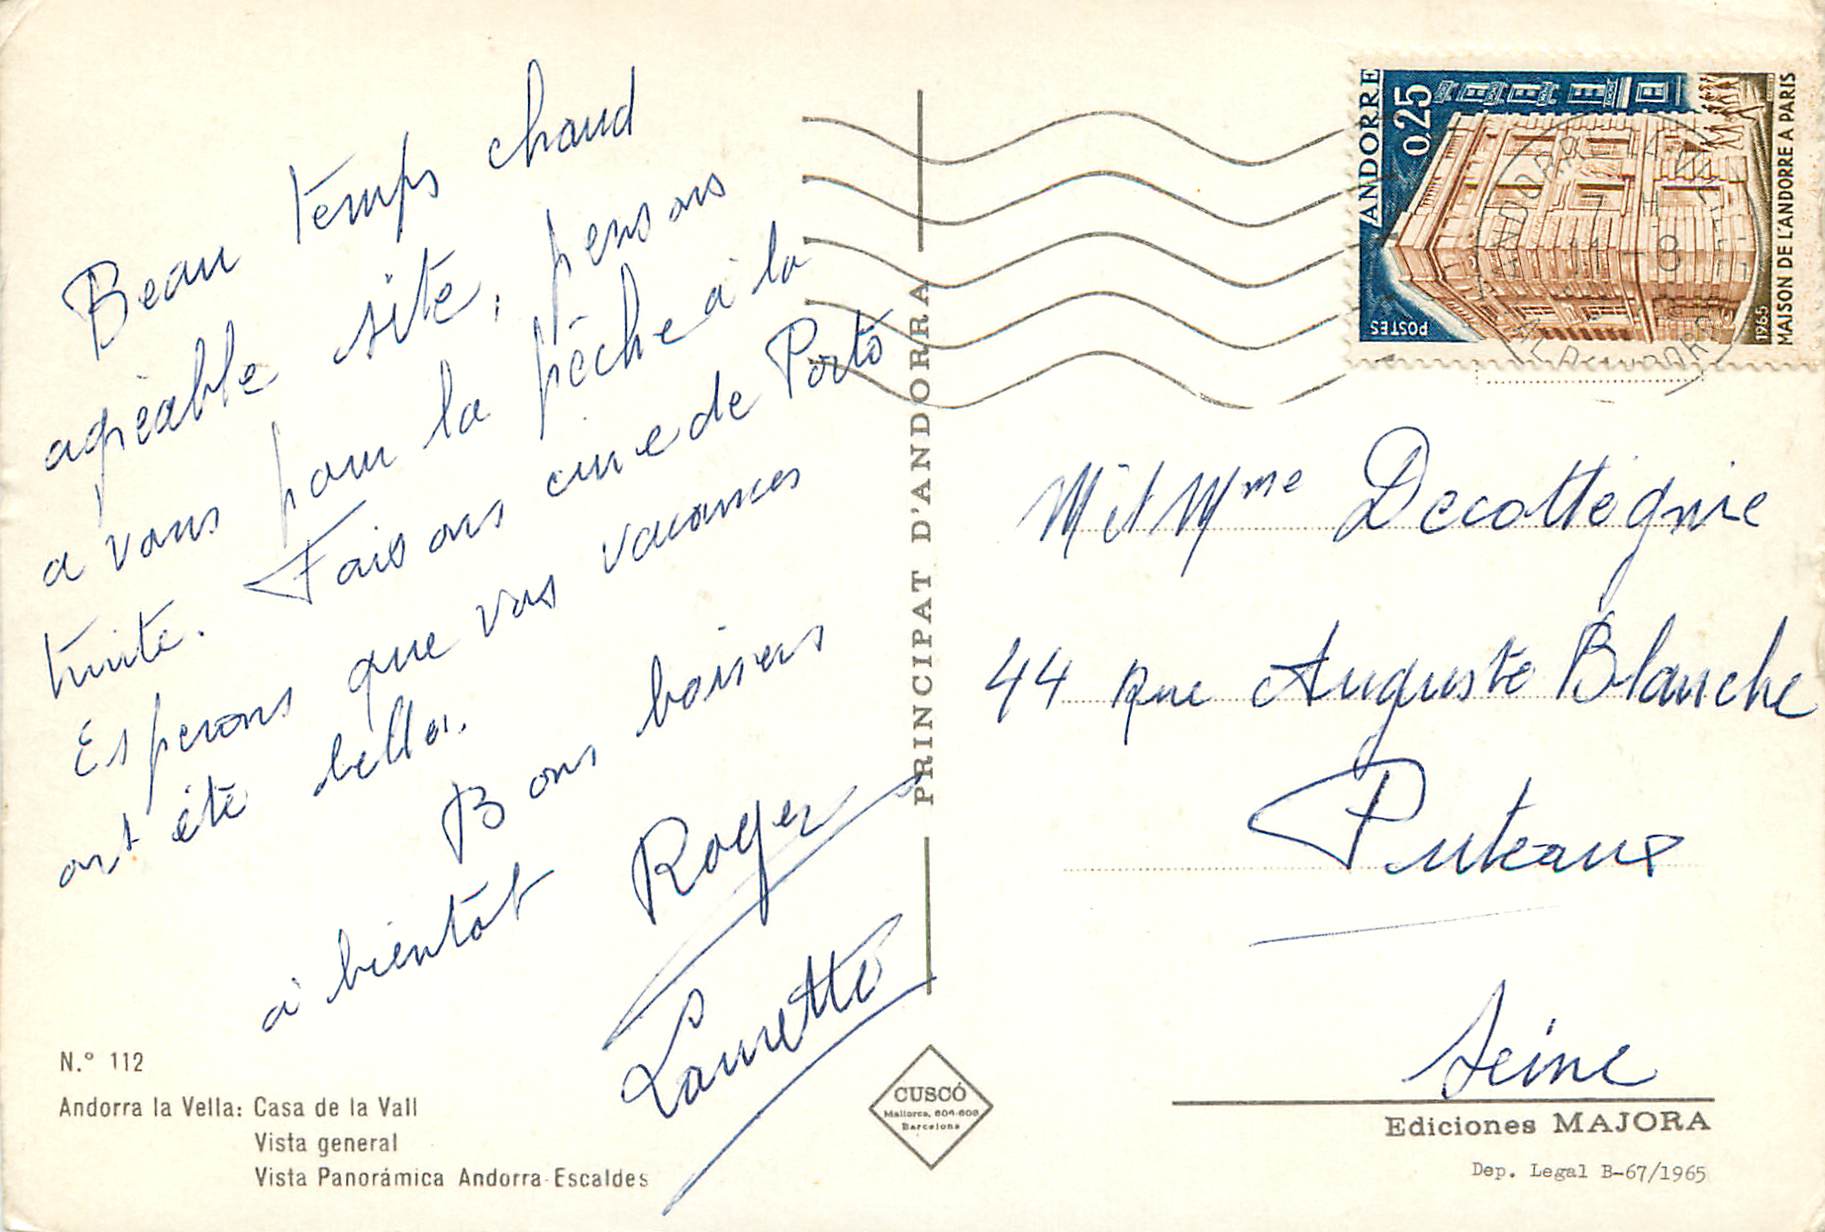 Beau temps chaud
agréable site, pensons
a vous pour la pêche à la
truite. Faisons cure de Porto
Esperons que vos vacances
ont été belles.
Bons baisers
à bientôt Roger
Laurette
N.° 112
Andorra la Vella: Casa de la Vall
Vista general
Vista Panorámica Andorra-Escaldes
PRINCIPAT D'ANDORRA
CUSCÓ
Mallorca, 604-608
Barcelona
ANDORRE
0,25
POSTES
1965
MAISON DE L'ANDORRE A PARIS
ANDORRE LA VIEILLE
Mr et Mme Decottegnie
44 rue Auguste Blanche
Puteaux
Seine
Ediciones MAJORA
Dep. Legal B-67/1965